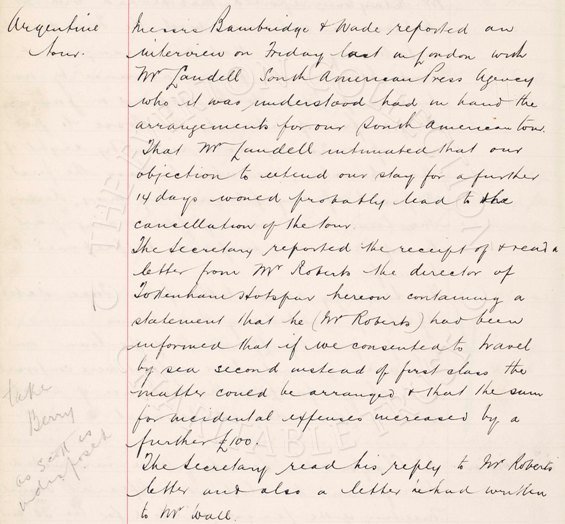 Argentine
Tour.
Messrs Bambridge & Wade reported an
interview on Friday last in London with
Mr Landell South American Press Agency
who it was understood had in hand the
arrangements for our South American tour.
That Mr Landell intimated that our
objection to extend our stay for a further
14 days would probably lead to the
cancellation of the tour.
The Secretary reported the receipt of & read a
letter from Mr Roberts the director of
Tottenham Hotspur hereon containing a
statement that he (Mr Roberts) had been
informed that if we consented to travel
by sea second instead of first class the
matter could be arranged & that the sum
for incidental expenses increased by a
further £100.
The Secretary read his reply to Mr Roberts
letter and also a letter he had written
to Mr Wall.
take
Berry
as Scott is
indisposed